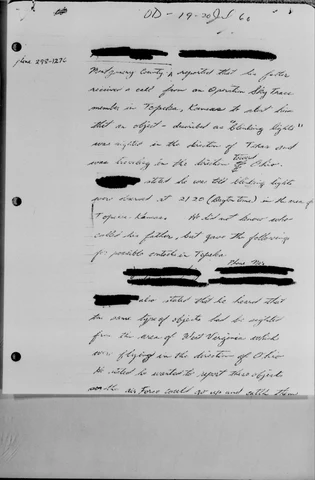 OD - 19-20 Jul 66
phone 298-1276
Montgomery County reported that his father
received a call from an Operation Skytrace
member in Topeka, Kansas to alert him
that an object - described as "blinking lights"
was sighted in the direction of and
was traveling in the direction toward Ohio.
stated he was told blinking lights
were at 2120 (Dayton time) in the area of
Topeka Kansas. He did not know who
called his father, but gave the following
for possible contacts in Topeka.
Phone No.
also stated that he heard that
the same type of objects had be sighted
from the area of West Virginia which
was flying in the direction of Ohio
He stated he wanted to report these objects
so the Air Force could go up and them